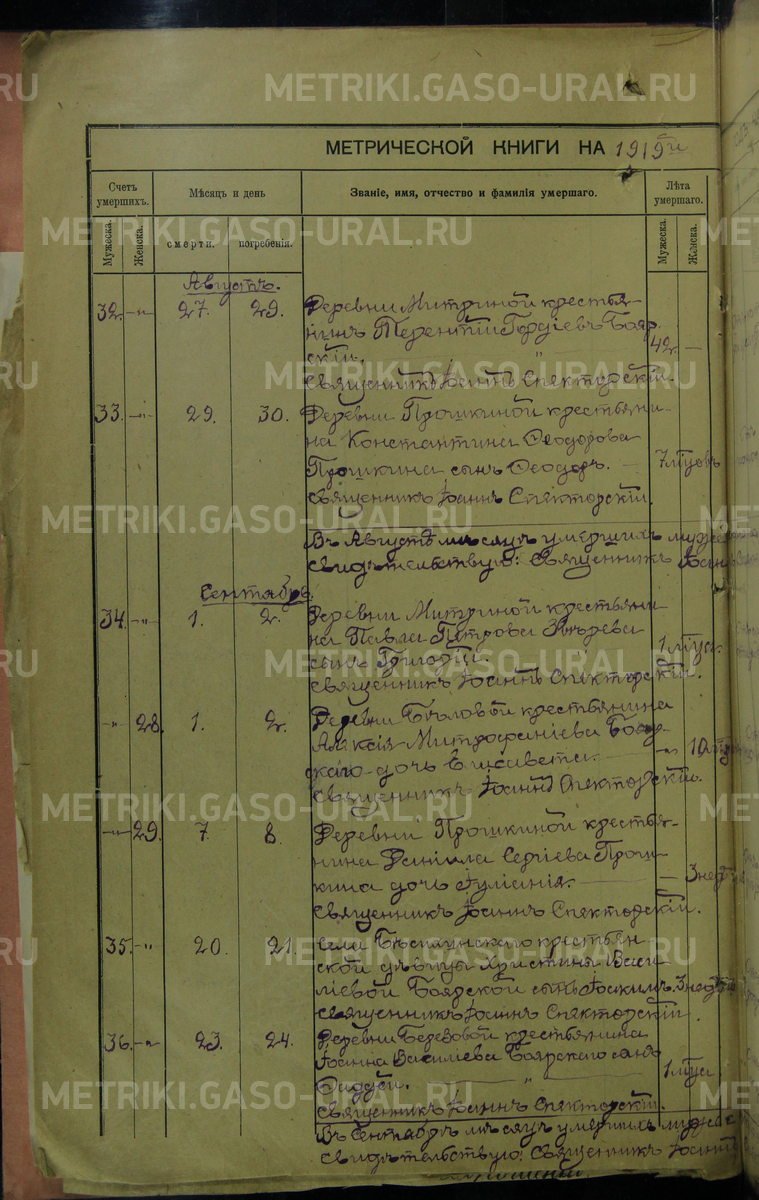 METRIKI.GASO-URAL.RU
МЕТРИЧЕСКОЙ КНИГИ НА 1919й
Счетъ умершихъ.
Мѣсяцъ и день
Званіе, имя, отчество и фамилія умершаго.
Лѣта умершаго.
Мужеска.
Женска.
смерти.
погребенія.
Мужеска.
Женска.
Августъ.
32. -„- 27. 29. Деревни Митриной крестья-
нинъ Терентій Гордіевъ Бояр-
скій. „ 42. —
Священникъ Іоаннъ Спекторскій.
33. -„- 29. 30. Деревни Прошкиной крестьяни-
на Константина Ѳеодорова
Прошкина сынъ Ѳеодоръ. — 7 мѣсяцъ
Священникъ Іоаннъ Спекторскій.
Въ Августѣ мѣсяцѣ умершихъ мужес
свидѣтельствую: Священникъ Іоаннъ
Сентябрь.
34. -„- 1. 2. Деревни Митриной крестьяни-
на Павла Петрова
сынъ 1 м-ца.
Священникъ Іоаннъ Спекторскій.
-„- 28. 1. 2. Деревни Бѣловой крестьянина
Алексія Митрофаніева Бояр-
скаго дочь Елисавета. — -„- 10
Священникъ Іоаннъ Спекторскій.
-„- 29. 7. 8. Деревни Прошкиной крестья-
нина Даніила Сергіева Прош-
кина дочь Іуліанія. — — 3 нед
Священникъ Іоаннъ Спекторскій.
35. -„- 20. 21. села крестьян-
ской дѣвицы Христины Васи-
ліевой Боярской сынъ Іоакимъ. 3 нед
Священникъ Іоаннъ Спекторскій.
36. -„- 23. 24. Деревни Березовой крестьянина
Іоанна Василіева Боярскаго сынъ
Ѳаддей. „ 1 м-ца
Священникъ Іоаннъ Спекторскій.
Въ Сентябрѣ мѣсяцѣ умершихъ мужес
свидѣтельствую: Священникъ Іоаннъ